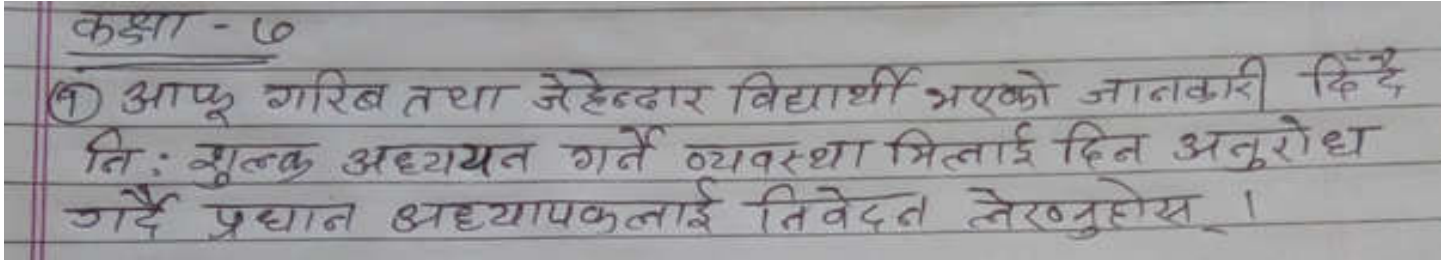 कक्षा - ७
१ आफू गरिब तथा जेहेन्दार विद्यार्थी भएको जानकारी दिँदै
नि: शुल्क अध्ययन गर्ने व्यवस्था मिलाई दिन अनुरोध
गर्दै प्रधान अध्यापकलाई निवेदन लेख्नुहोस् ।